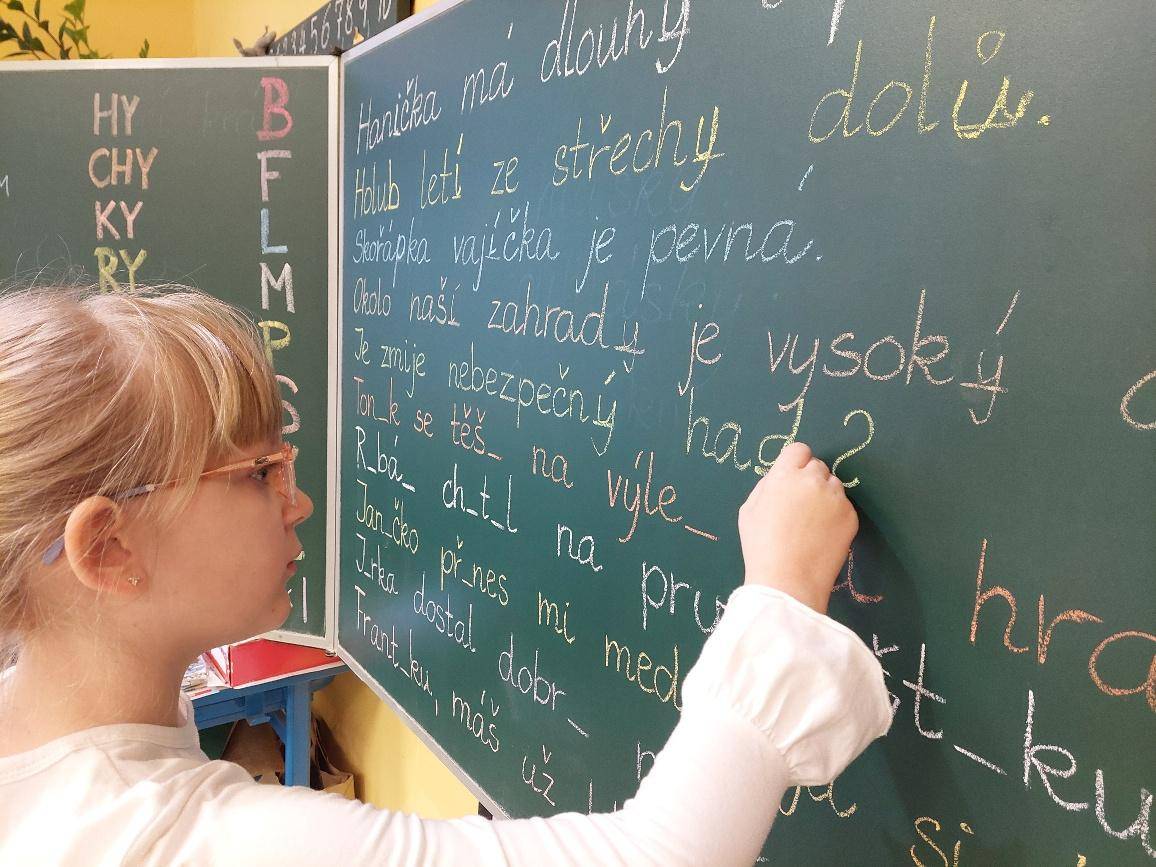 1 2 3 4 5 6 7 8 9 10
HY
CHY
KY
RY
B
F
L
M
P
S
Hanička má dlouhý
Holub letí ze střechy dolů.
Skořápka vajíčka je pevná.
Okolo naší zahrady je vysoký
Je zmije nebezpečný had?
Ton_k se těš_ na výle_
R_bá_ ch_t_l na
Jan_čko př_nes mi med
J_rka dostal dobr_
Frant_ku, máš už